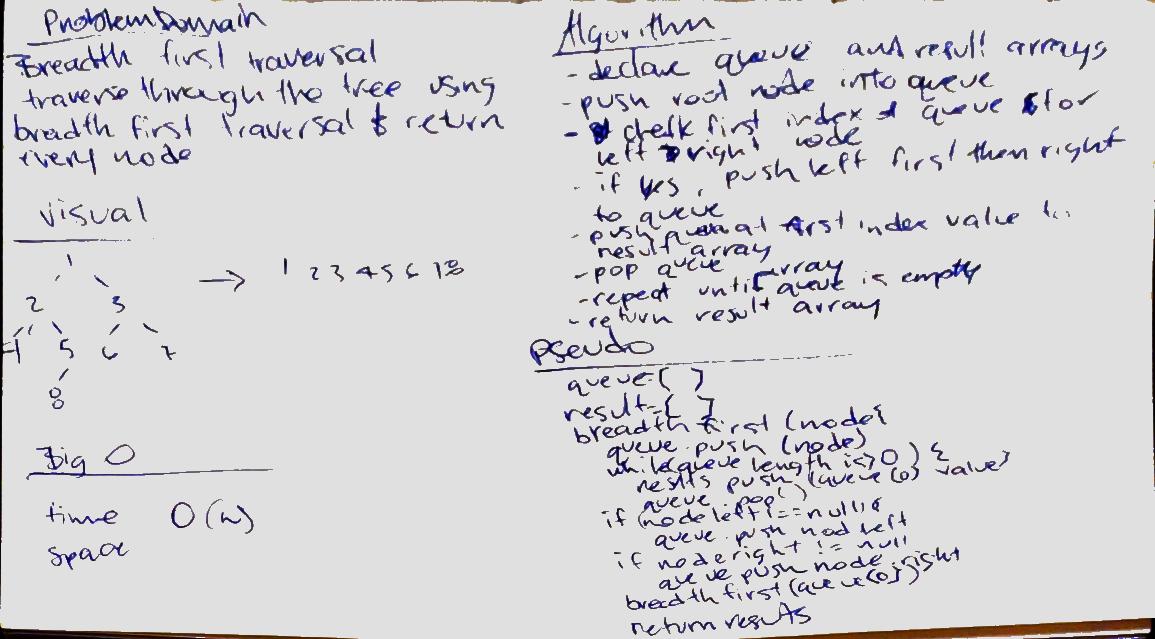 Problem Domain
Breadth first traversal
traverse through the tree using
bredth first traversal & return
every node
visual
1
2 3
4 5 6 7
8
→ 1 2 3 4 5 6 7 8
Big O
time O(n)
space
Algorithm
- declare queue and result arrays
- push root node into queue
- check first index queue for
left right node
- if yes, push left first then right
to queue
- push at first index value
result array
- pop queue array
- repeat until queue is empty
- return result array
Pseudo
queue=[ ]
result=[ ]
breadth first (node{
queue.push (node)
while(queue length is >0) {
reslts push (queue[0] value)
queue.pop()
if (node left !== null){
queue.push nod left
if node right != null
queue push node.right
breadth first (queue[0])
return results